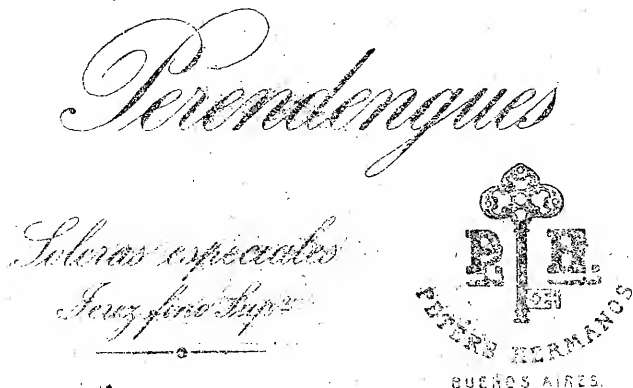 Perendengues
Soleras especiales
Jerez fino Sup.or
P. H.
PETERS HERMANOS
BUENOS AIRES.